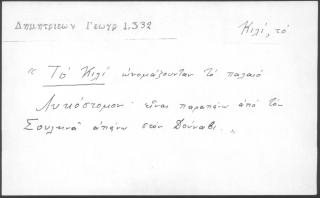 Δημητριεων Γεωγρ 1,332
Κιλί, τό
« Τό Κιλί ὠνομάζουνταν τό παλαιό
Λυκόστομον· εἶναι παραπάνω ἀπό τόν
Σουλινᾶ ἀπάνω στόν Δούναβι. »